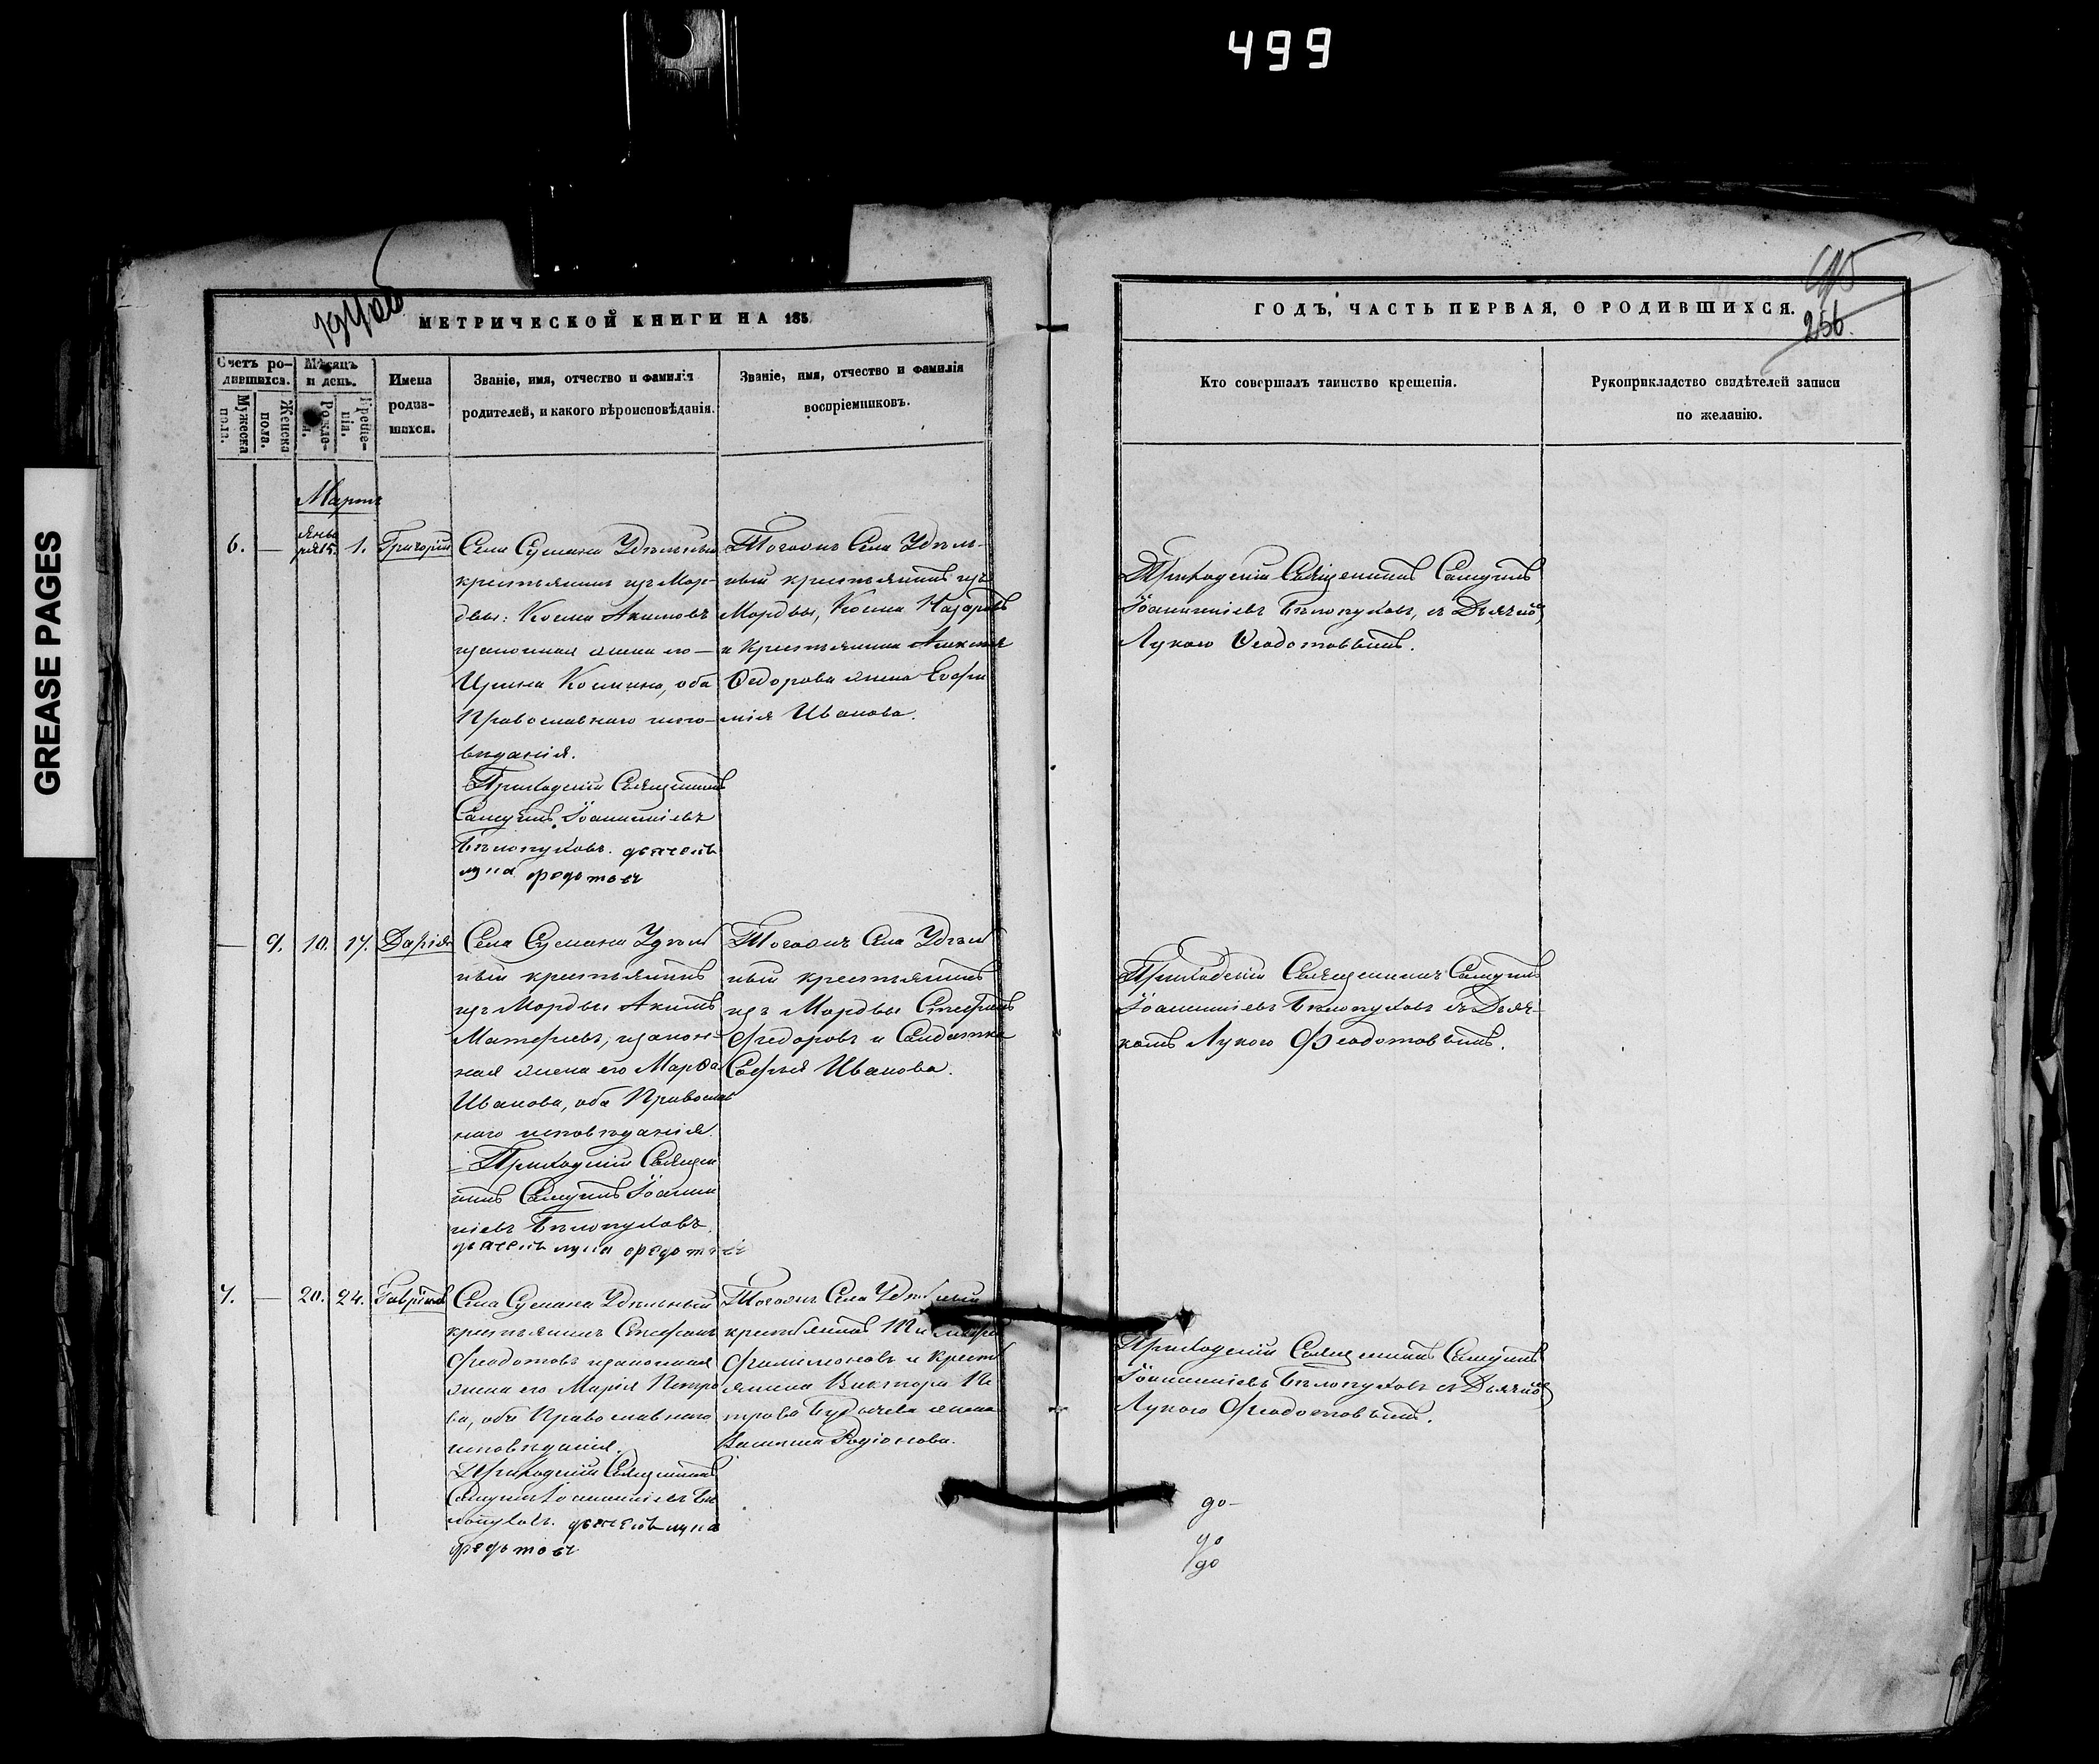 499
GREASE PAGES
МЕТРИЧЕСКОЙ КНИГИ НА 185
Счетъ ро-
дившихся.
Мужеска
пола.
Женска
пола.
Мѣсяцъ
и день.
Рожде-
нія.
Креще-
нія.
Имена
родив-
шихся.
Званіе, имя, отчество и фамилія
родителей, и какого вѣроисповѣданія.
Званіе, имя, отчество и фамилія
воспріемниковъ.
Мартъ
6. — Янва
ря 15. 1. Григорій
Села Сускана Удѣльный
крестьянинъ изъ Мор-
двы: Косма Акимовъ
законная жена его —
Ирина Космина, оба
Православнаго испо-
вѣданія.
Приходскій Священникъ
Самуилъ Іоанникіевъ
Бѣлопуховъ. дьячекъ
лука федотовъ
Тогожъ Села Удѣль-
ный крестьянинъ изъ
Мордвы, Косма Назаровъ
и Крестьянина Алексѣя
Ѳедорова жена Евфи
мія Иванова.
— 9. 10. 17. Дарія
Села Сускана Удѣль
ный крестьянинъ
изъ Мордвы Акимъ
Матфіевъ, закон-
ная жена его Марѳа
Иванова, оба Православ
наго исповѣданія.
Приходскій Священ
никъ Самуилъ Іоанни
кіевъ Бѣлопуховъ.
дьячекъ лука федотовъ
Тогожъ Села Удѣль
ный крестьянинъ
изъ Мордвы Стефанъ
Федоровъ и Солдатка
Софья Иванова.
7. — 20. 24. Гавріилъ
Села Сускана Удѣльный
крестьянинъ Стефанъ
Феодотовъ законная
жена его Марія Петро
ва, оба Православнаго
исповѣданія.
Приходскій Священникъ
Самуилъ Іоанникіевъ Бѣ
лопуховъ. дьячекъ лука
федотовъ
Тогожъ Села Удѣльный
крестьянинъ
Филимоновъ и Кресть
янина Виктора Пе
трова жена
Родіонова.
ГОДЪ, ЧАСТЬ ПЕРВАЯ, О РОДИВШИХСЯ.
256.
Кто совершалъ таинство крещенія.
Рукоприкладство свидѣтелей записи
по желанію.
Приходскій Священникъ Самуилъ
Іоанникіевъ Бѣлопуховъ, съ Дьячкомъ
Лукою Ѳеодотовымъ.
Приходскій Священникъ Самуилъ
Іоанникіевъ Бѣлопуховъ съ Дьяч-
комъ Лукою Феодотовымъ.
Приходскій Священникъ Самуилъ
Іоанникіевъ Бѣлопуховъ съ Дьячкомъ
Лукою Феодотовымъ.
до-
до
до